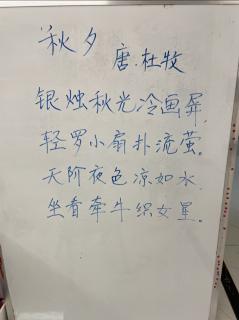 秋夕
唐.杜牧
银烛秋光冷画屏,
轻罗小扇扑流萤。
天阶夜色凉如水,
坐看牵牛织女星。